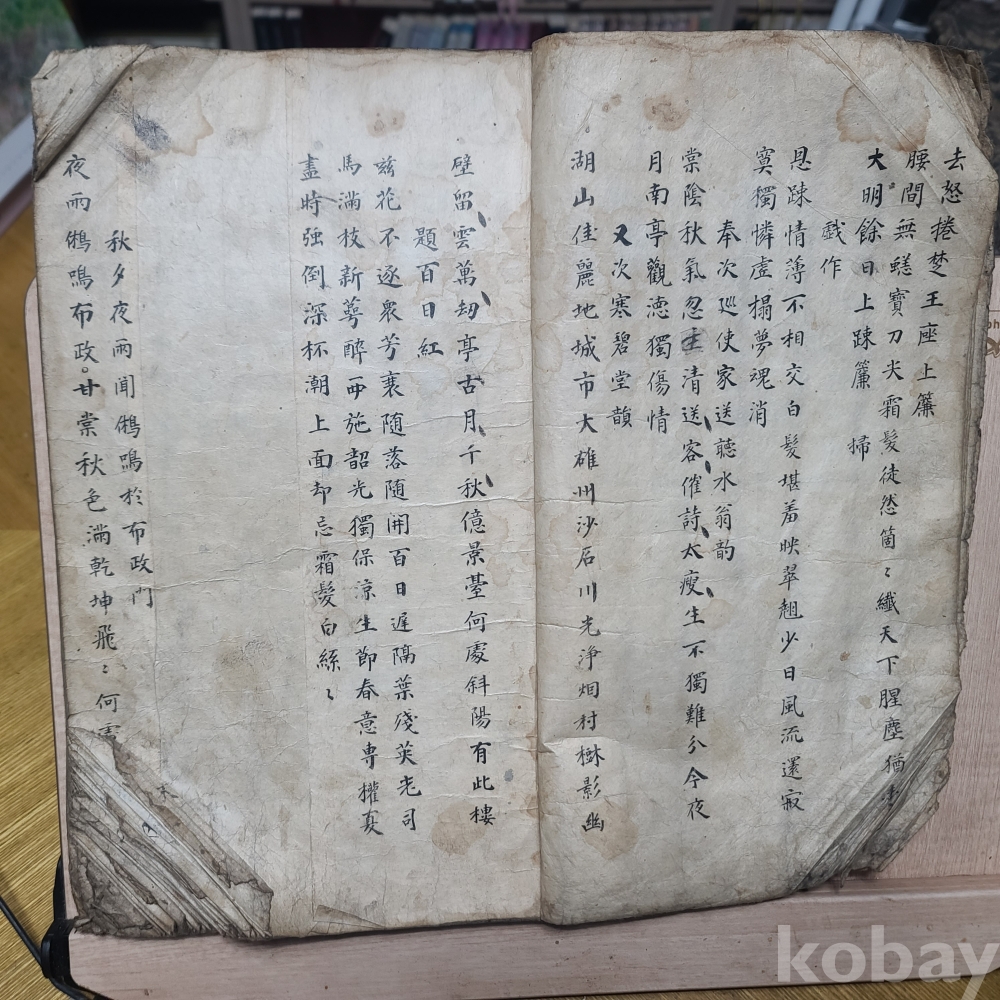 去怒捲楚王座上簾
腰間無蟋寶刀尖霜髮徒然箇〻纖天下腥塵猶未
大明餘日上踈簾 掃
戱作
恩踈情薄不相交白髮堪羞映翠翹少日風流還寂
寞獨憐虛搨夢魂消
奉次廵使家送聽水翁韵
棠陰秋氣忽生清送客催詩太瘦生不獨難分今夜
月南亭觀漣獨傷情
又次寒碧堂韻
湖山佳麗地城市大雄州沙石川光淨烟村樹影幽
壁留雲萬刼亭古月千秋億景臺何處斜陽有此樓
題百日紅
玆花不逐衆芳衰隨落隨開百日遲隔葉殘英老司
馬滿枝新萼醉西施韶光獨保凉生節春意專權夏
盡時強倒深杯潮上面却忘霜髮白絲〻
秋夕夜雨聞鵂鳴於布政門
夜雨鵂鳴布政。甘棠秋色滿乾坤飛〻何處
kobay